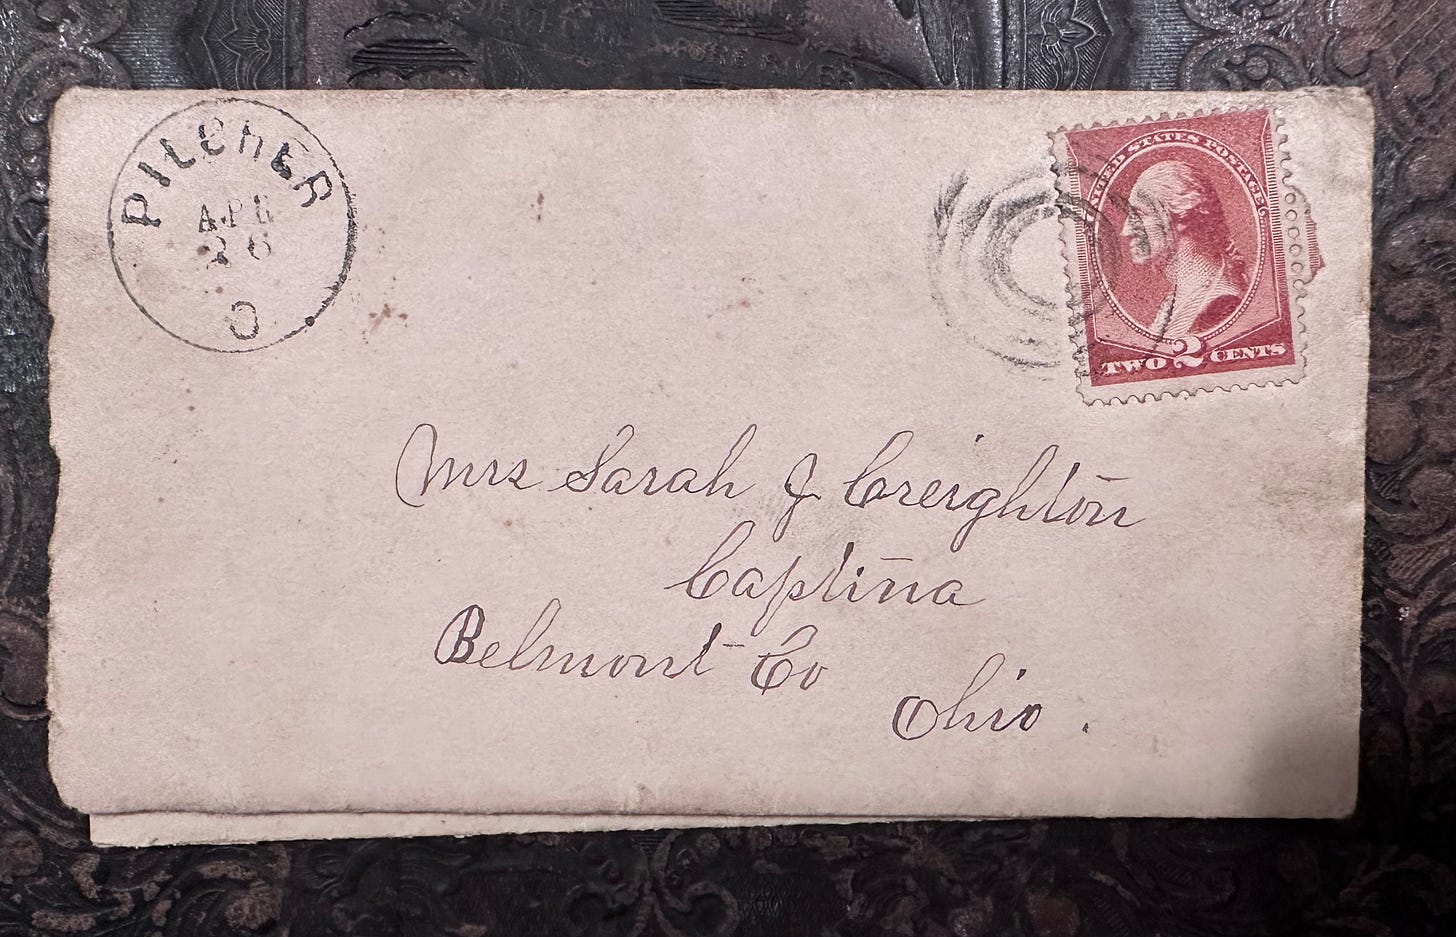 PILCHER
APR
26
O
UNITED STATES POSTAGE
TWO 2 CENTS
Mrs Sarah J Creighton
Captina
Belmont Co
Ohio.